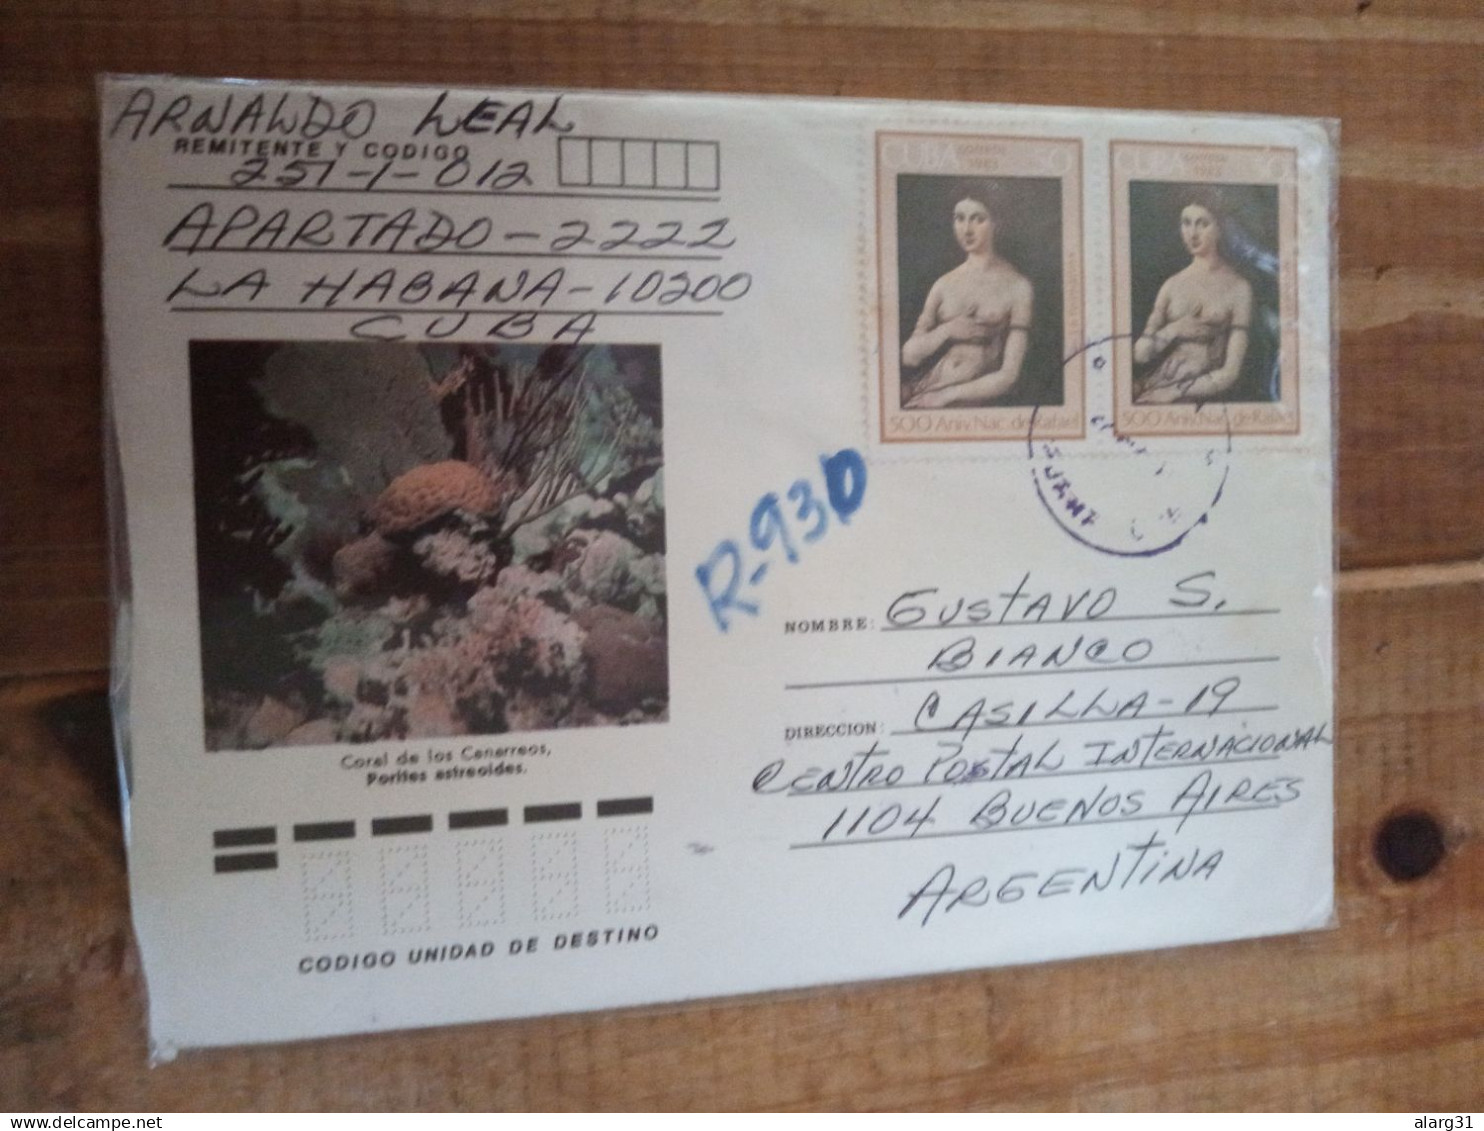 ARNALDO LEAL
REMITENTE Y CODIGO
257-1-812
APARTADO-2222
LA HABANA-10200
CUBA
CUBA CORREOS 1983 50
500 Aniv. Nac. de Rafael
CUBA CORREOS 1983 50
500 Aniv. Nac. de Rafael
R-930
Coral de los Canarreos,
Porites astreoides.
CODIGO UNIDAD DE DESTINO
NOMBRE: GUSTAVO S.
BIANCO
DIRECCION: CASILLA-19
CENTRO POSTAL INTERNACIONAL
1104 BUENOS AIRES
ARGENTINA
alarg31